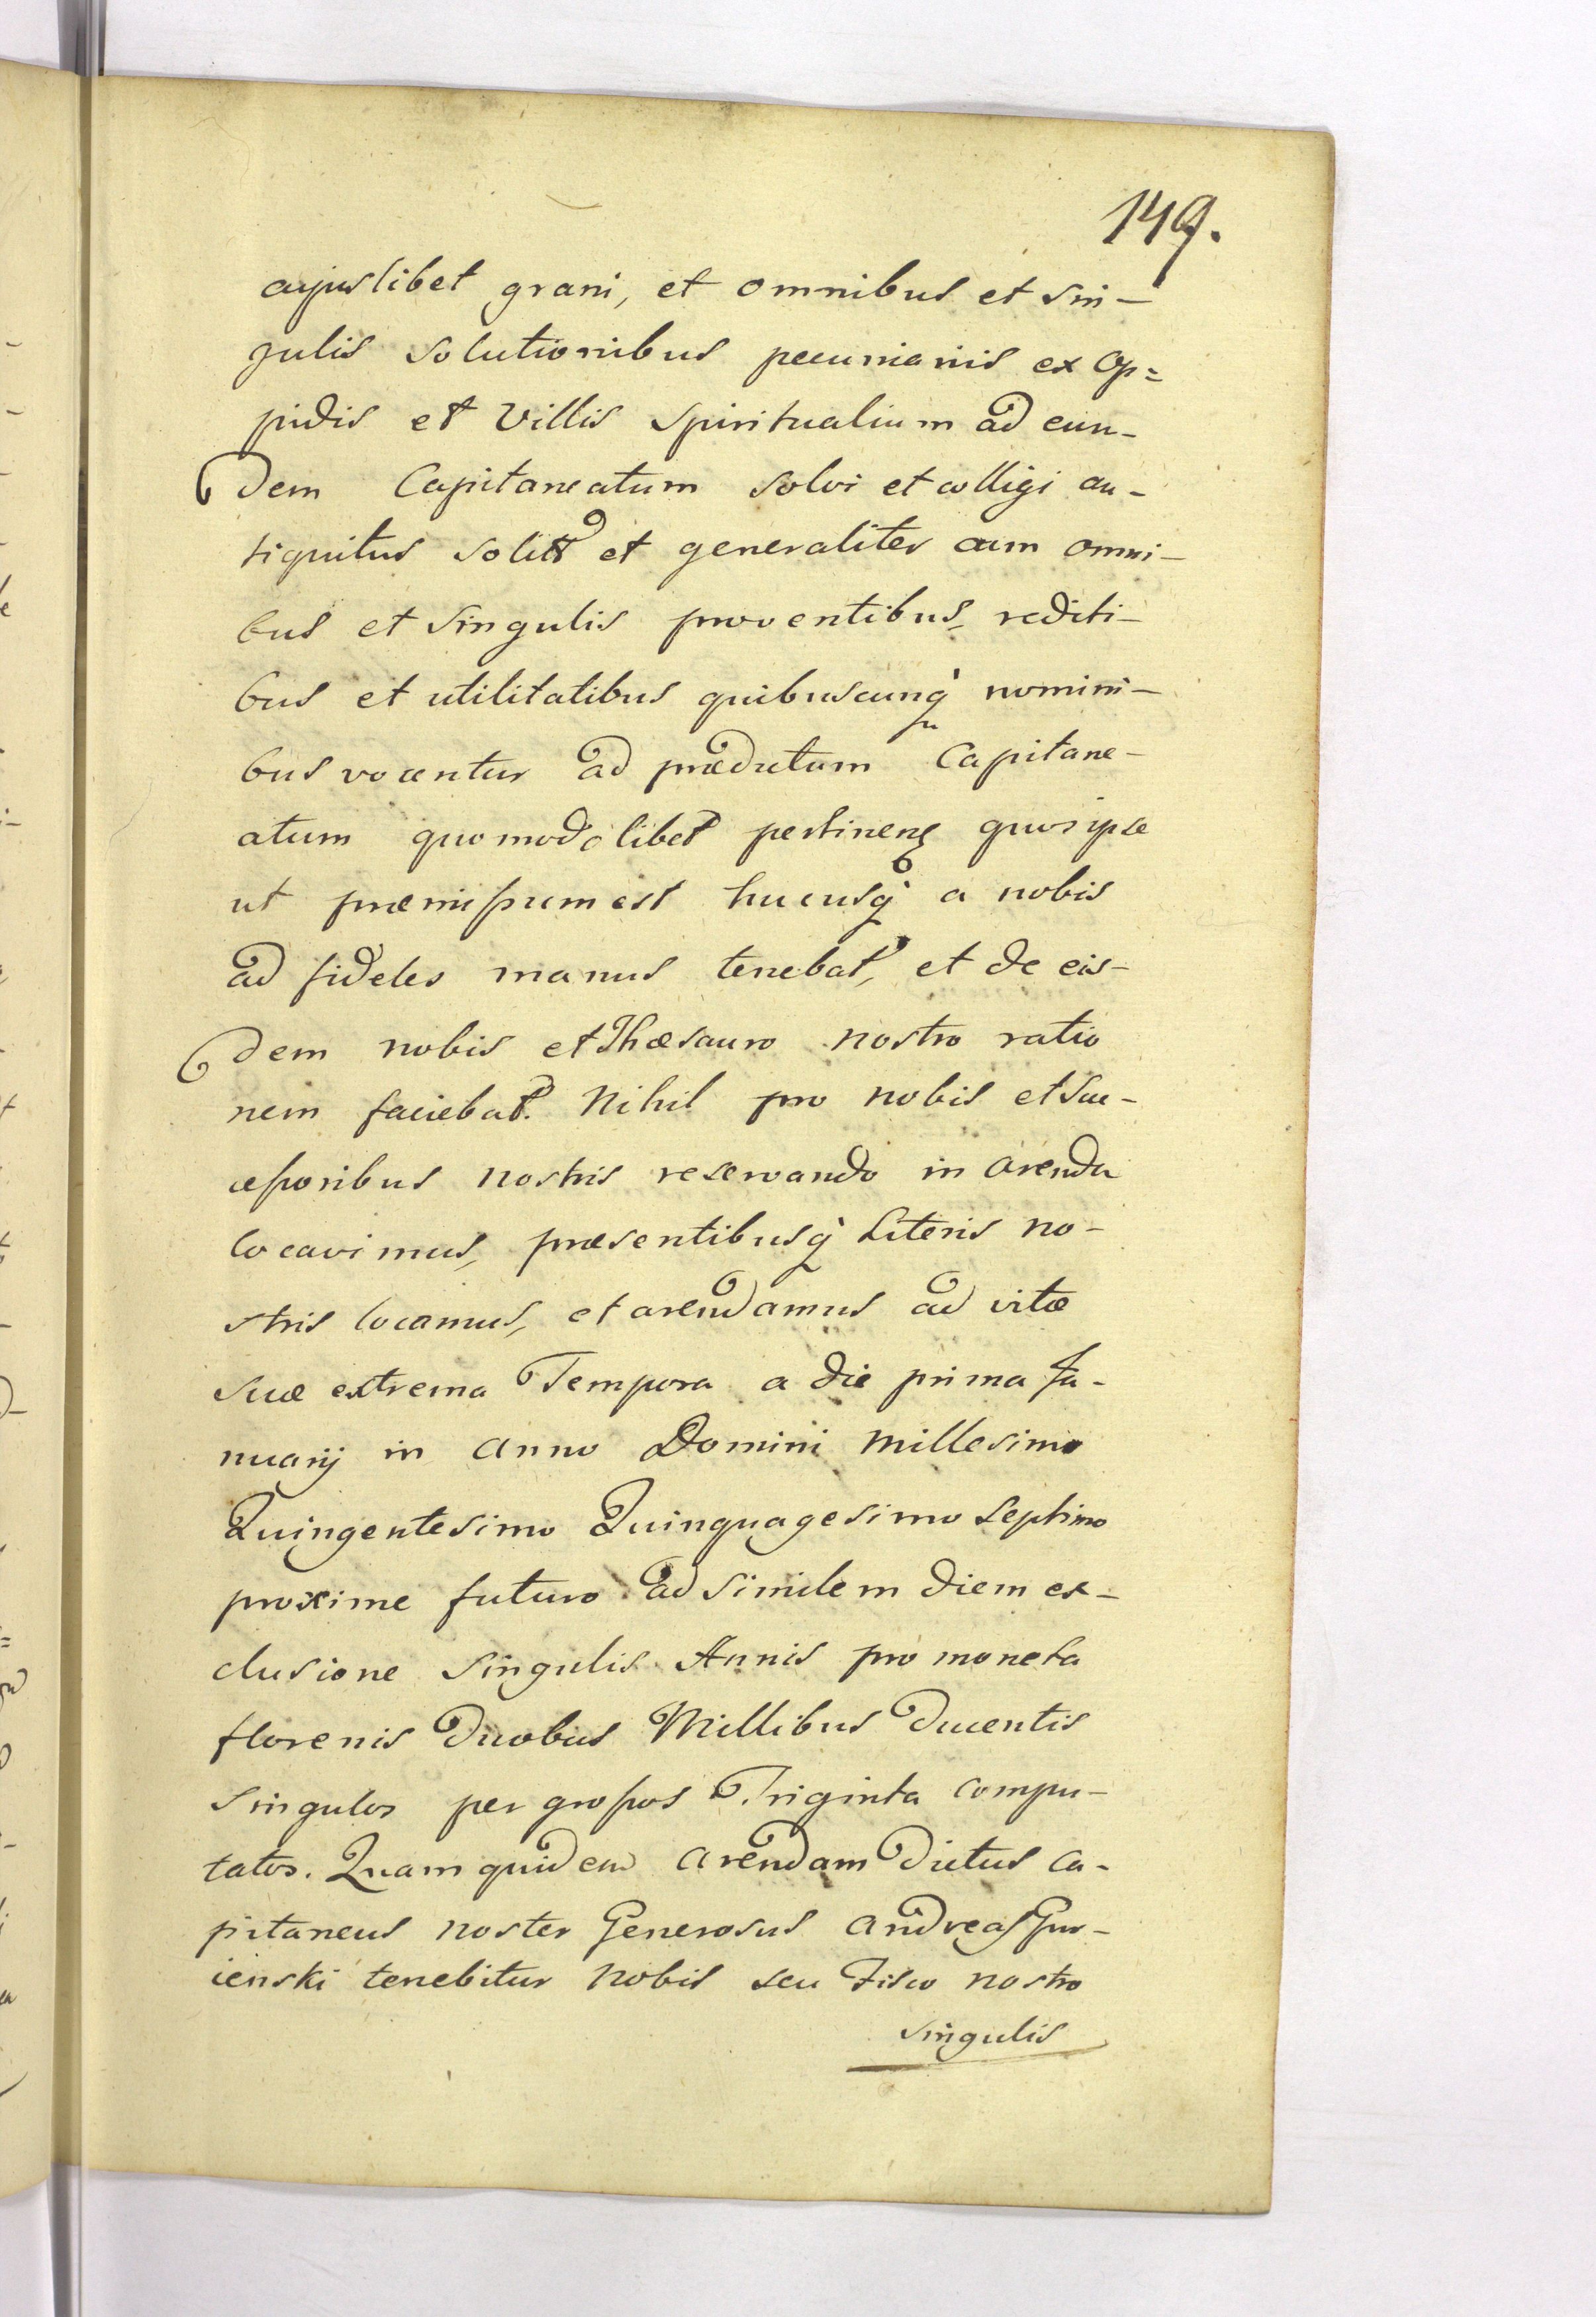 149.
cujuslibet grani, et omnibus et sin-
gulis solutionibus pecuniariis ex Op=
pidis et Villis Spiritualium ad eun-
dem Capitaneatum solvi et colligi an-
tiquitus solit et generaliter cum omni-
bus et singulis proventibus, rediti-
bus et utilitatibus quibuscunq nomini-
bus vocentur ad prædictum Capitane-
atum quomodolibet pertinen quos ipse
ut præmissum est hucusq a nobis
ad fideles manus tenebat, et de eis-
dem nobis et Thæsauro nostro ratio
nem faciebat. Nihil pro nobis et Suc-
cessoribus nostris reservando in arenda
locavimus, præsentibusq Literis no-
stris locamus, et arendamus ad vitæ
suæ extrema Tempora a die prima Ja-
nuarij in anno Domini Millesimo
Quingentesimo Quinquagesimo Septimo
proxime futuro ad similem diem ex-
clusione singulis Annis pro moneta
florenis duobus Millibus ducentis
singulos per grossos Triginta compu-
tatos. Quam quidem arendam dictus Ca-
pitaneus noster Generosus Andreas Gur-
ienski tenebitur nobis seu Fisco nostro
singulis